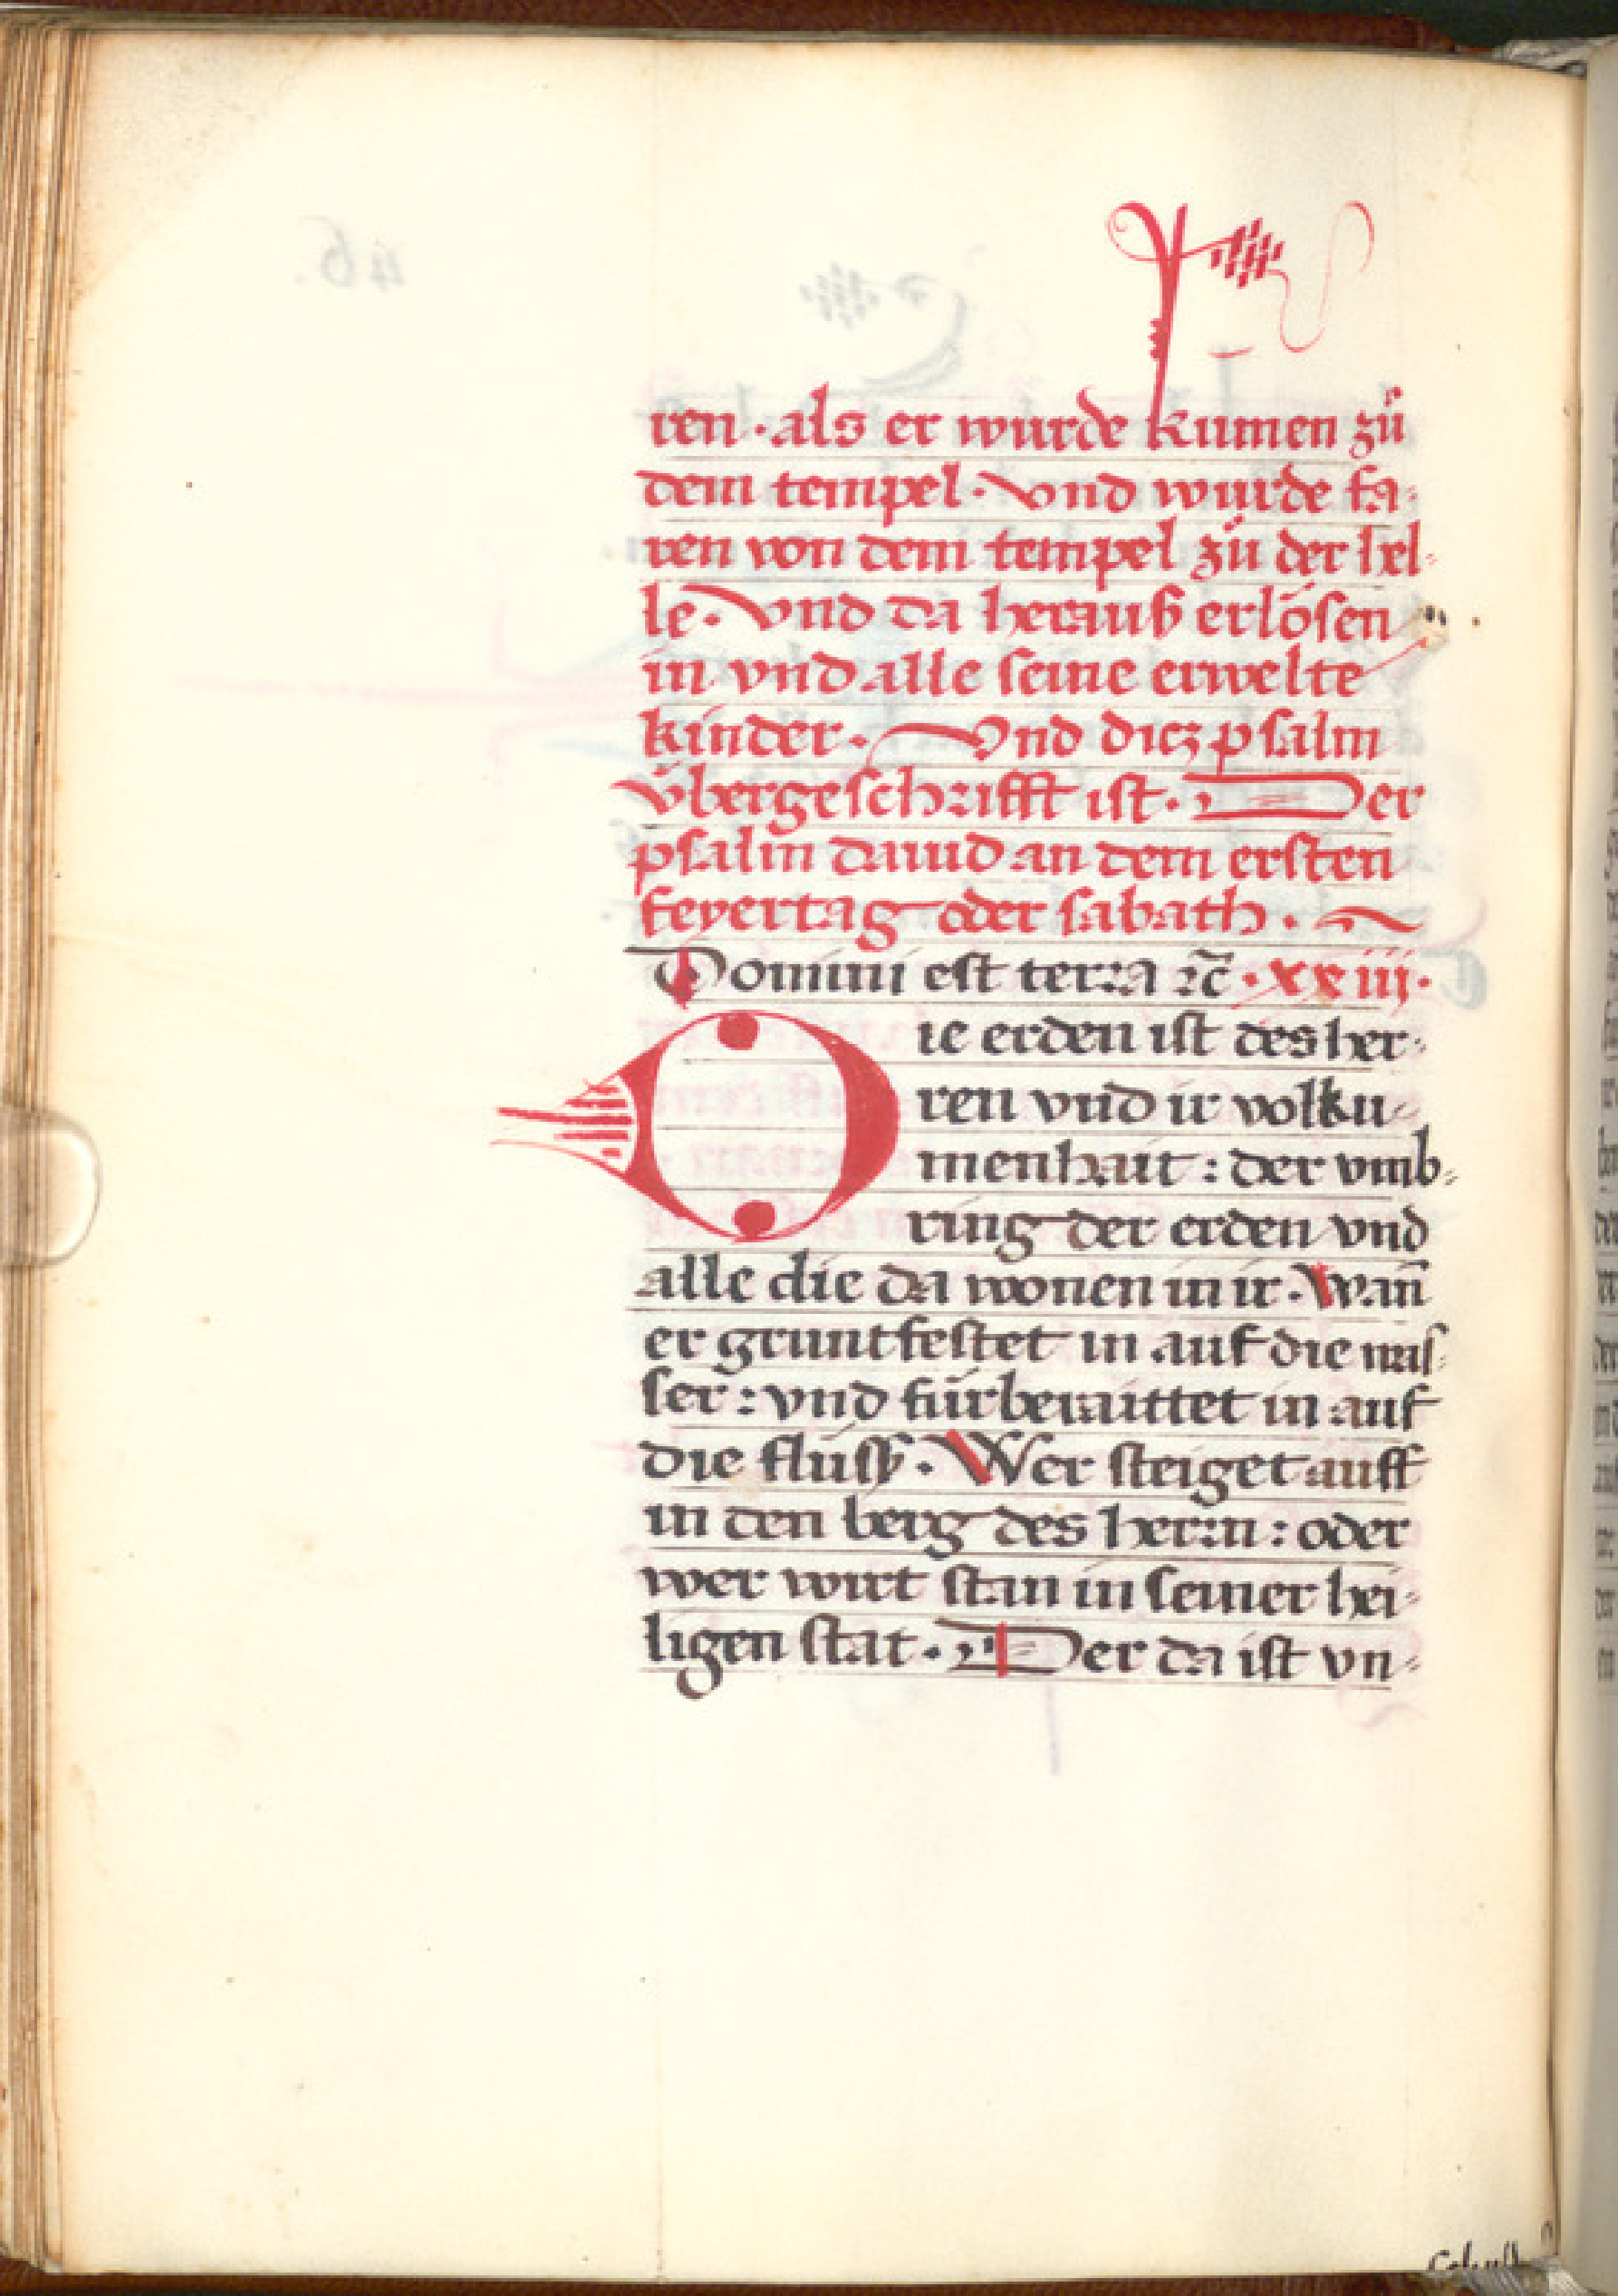 ren · als er wurde kumen zů
dem tempel · vnd wurde fa-
ren von dem tempel zů der hel-
le · vnd da herauß erlösen
in vnd alle seine erwelte
kinder · Vnd dicz psalm
v̈bergeschrifft ist · Der
psalm dauid an dem ersten
feyertag oder sabath ·
Domini est terra ⁊c̄ · xxiii ·
Die erden ist des her-
ren vnd ir volku-
menhait : der vmb-
ring der erden vnd
alle die da wonen in ir · Wan̄
er gruntfestet in auf die was-
ser : vnd fürberaittet in auf
die flüss · Wer steiget auff
in den berg des herrn : oder
wer wirt stan in seiner hei-
ligen stat · Der da ist vn-